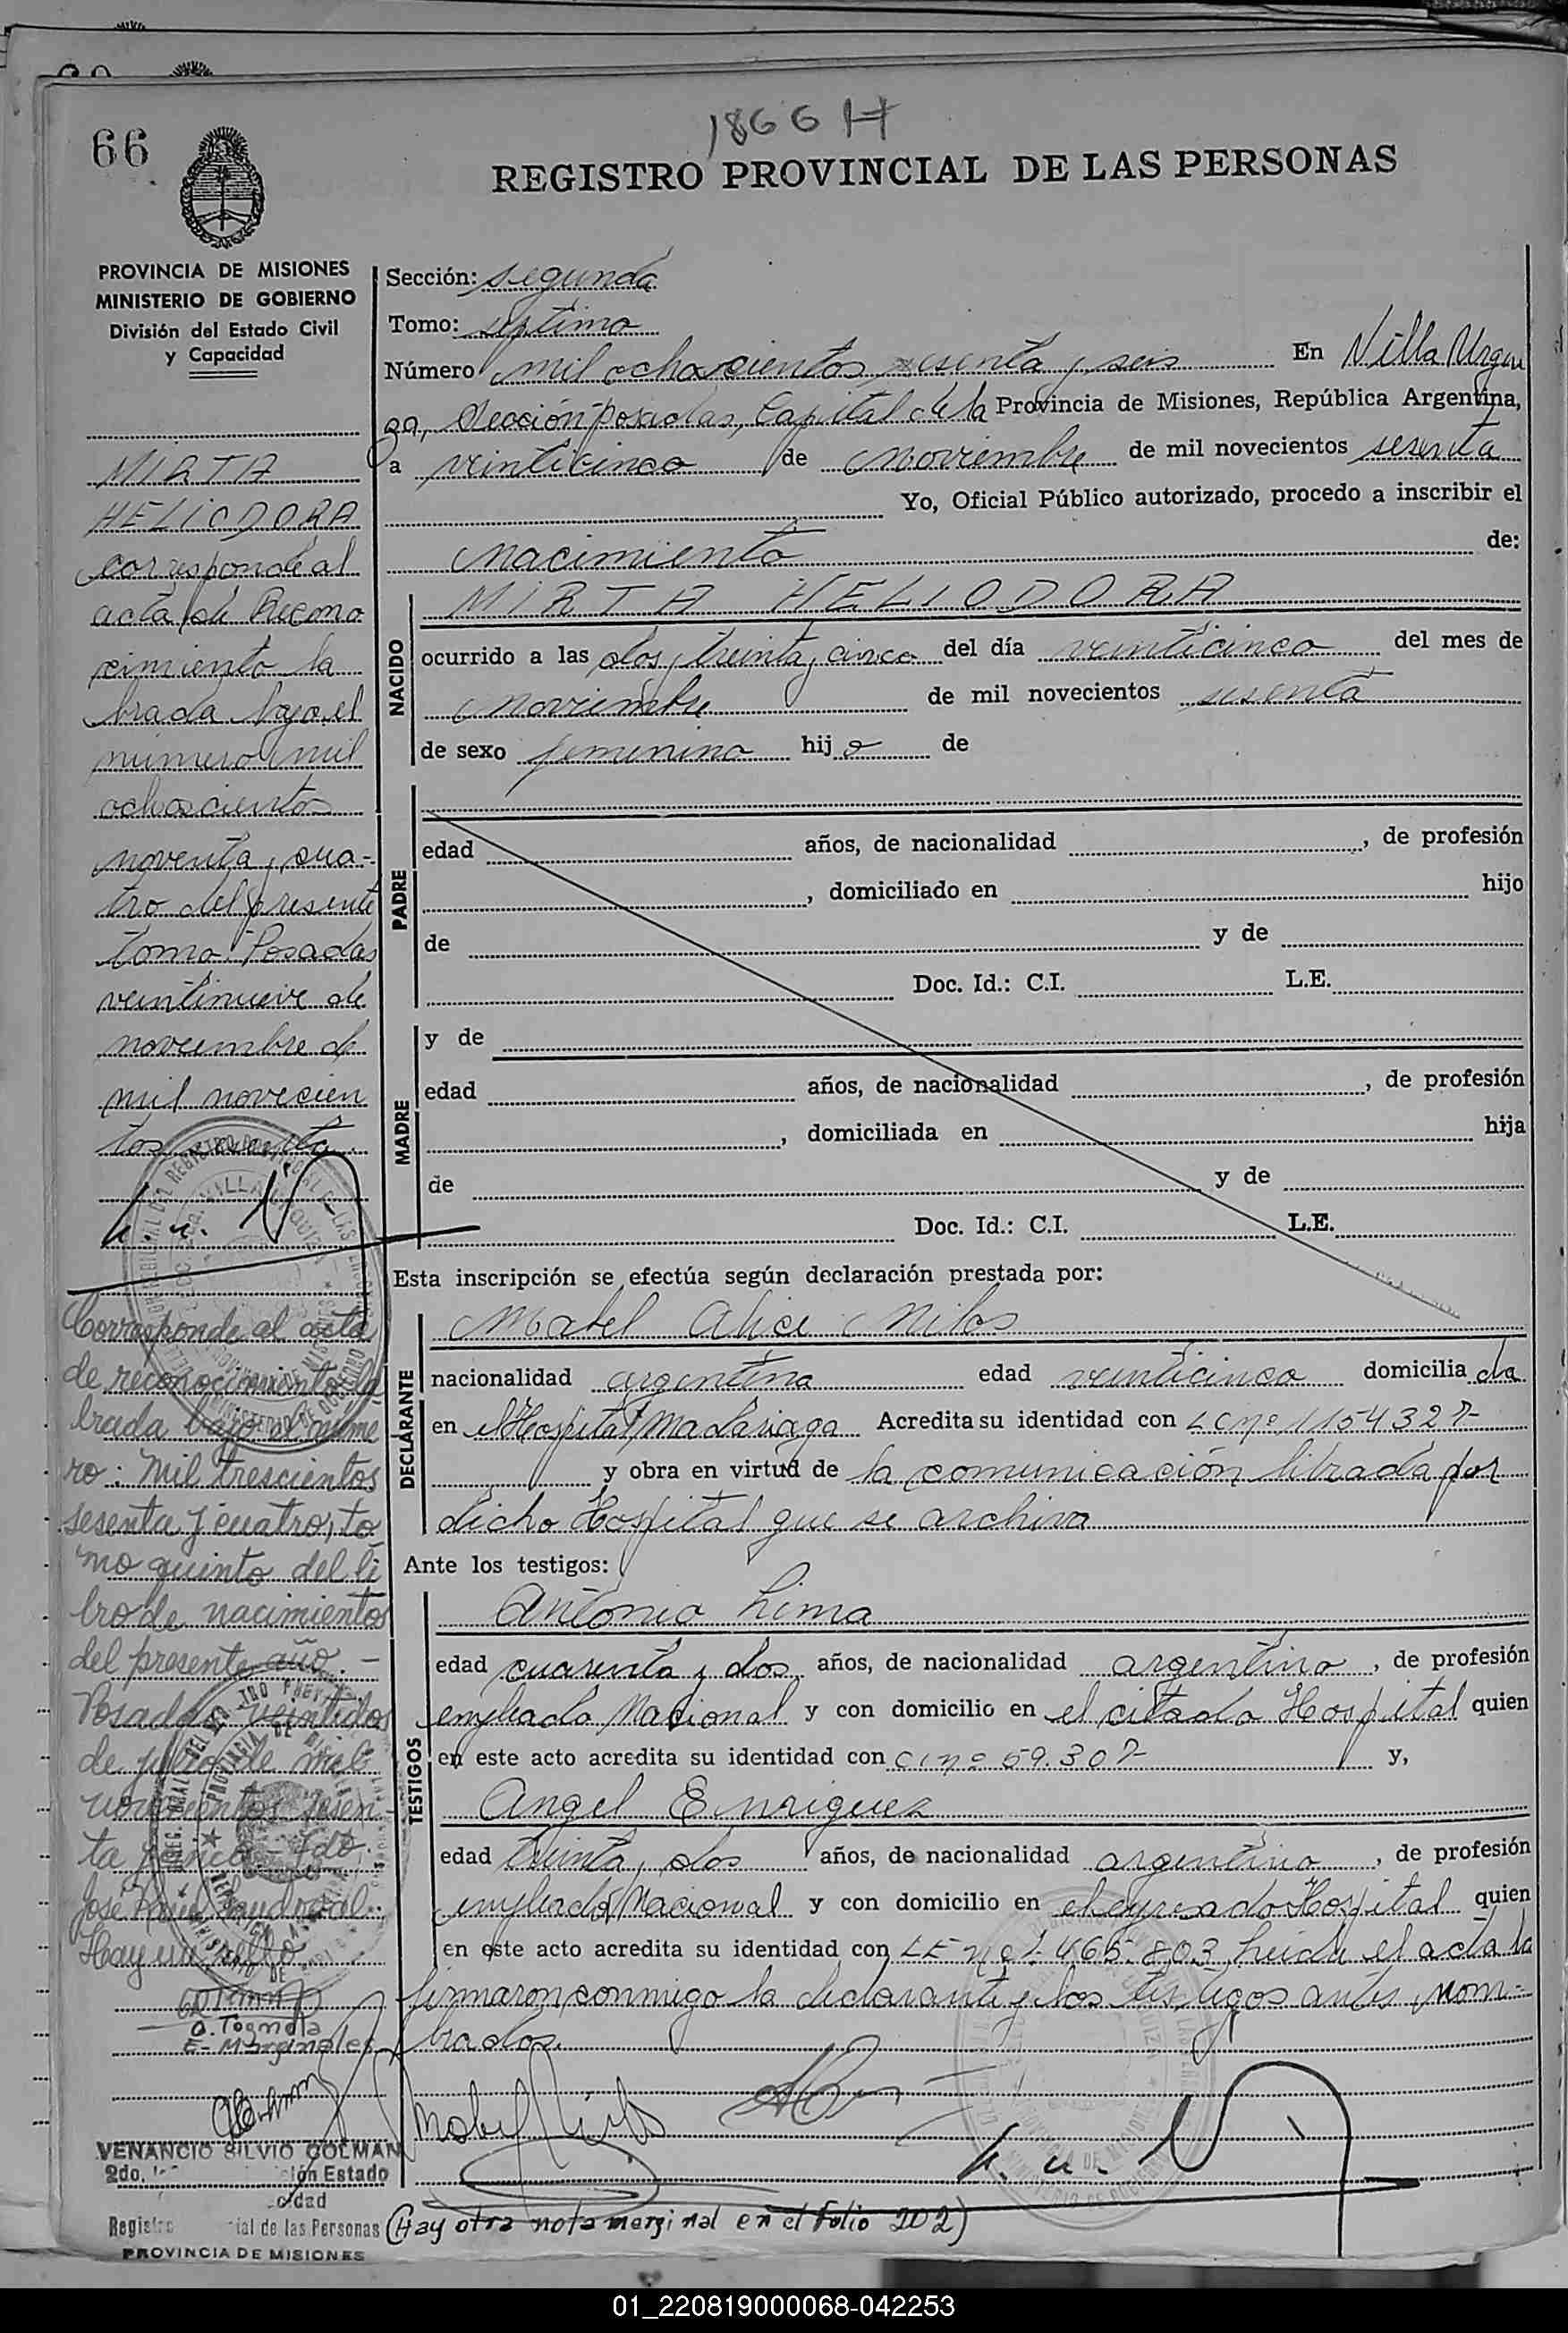 1866 H
66
REGISTRO PROVINCIAL DE LAS PERSONAS
PROVINCIA DE MISIONES
MINISTERIO DE GOBIERNO
División del Estado Civil
y Capacidad
MIRTA
HELIODORA
corresponde al
acta de Recono
cimiento la
brada bajo el
número mil
ochocientos
noventa y cua-
tro del presente
tomo Posadas
veintinueve de
noviembre de
mil novecien
tos sesenta.
Corresponde al acta
de reconocimiento la
brada bajo el núme
ro: Mil trescientos
sesenta y cuatro, to
mo quinto del li
bro de nacimientos
del presente año. -
Posadas veintidos
de julio de mil
novecientos sesen
ta y cinco - Fdo.
José Raúl Sandoval.
Hay un sello
E- Marginales
VENANCIO SILVIO GOLMAN
2do.
Estado
Registro
ial de las Personas
PROVINCIA DE MISIONES
Sección: segunda
Tomo: septimo
Número mil ochocientos sesenta y seis En Villa Urqui
za, Sección Posadas, Capital de la Provincia de Misiones, República Argentina,
a veinticinco de noviembre de mil novecientos sesenta
Yo, Oficial Público autorizado, procedo a inscribir el
nacimiento de:
NACIDO
MIRTA HELIODORA
ocurrido a las dos y treinta y cinco del día veinticinco del mes de
noviembre de mil novecientos sesenta
de sexo femenino hija de
PADRE
edad años, de nacionalidad , de profesión
, domiciliado en hijo
de y de
Doc. Id.: C.I. L.E.
MADRE
y de
edad años, de nacionalidad , de profesión
, domiciliada en hija
de y de
Doc. Id.: C.I. L.E.
Esta inscripción se efectúa según declaración prestada por:
DECLARANTE
Mabel Alice Nilos
nacionalidad argentina edad veinticinco domiciliada
en el Hospital Madariaga Acredita su identidad con LC nº 1154327-
y obra en virtud de la comunicación librada por
dicho Hospital que se archiva
Ante los testigos:
TESTIGOS
Antonio Lima
edad cuarenta y dos años, de nacionalidad argentino, de profesión
empleado Nacional y con domicilio en el citado Hospital quien
en este acto acredita su identidad con CI nº 59.307- y,
Angel Enriquez
edad treinta y dos años, de nacionalidad argentino, de profesión
empleado Nacional y con domicilio en el expresado Hospital quien
en este acto acredita su identidad con LE nº 1.465.803 leída el acta la
firmaron conmigo la declarante y los testigos antes nom-
brados.
(Hay otra nota marginal en el folio 202)
01_220819000068-042253